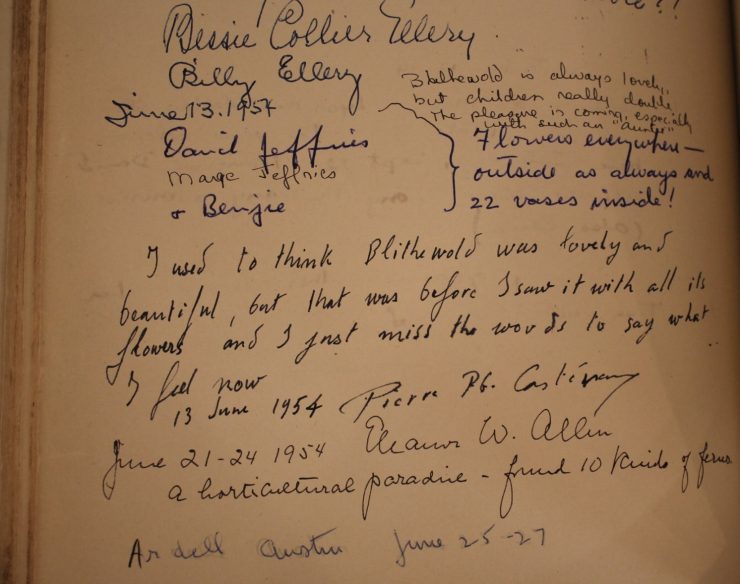 Bessie Collier Ellery
Billy Ellery
June 13. 1954
Blithewold is always lovely,
but children really double
the pleasure in coming, especially
with such an "aunte"
David Jeffries
Marge Jeffries
& Benjie
Flowers everywhere —
outside as always and
22 vases inside!
I used to think Blithewold was lovely and
beautiful, but that was before I saw it with all its
flowers and I just miss the words to say what
I feel now
13 June 1954 Pierre Ph.
June 21-24 1954 Eleanor W. Allen
a horticultural paradise - found 10 kinds of ferns
Ardell Austin June 25-27